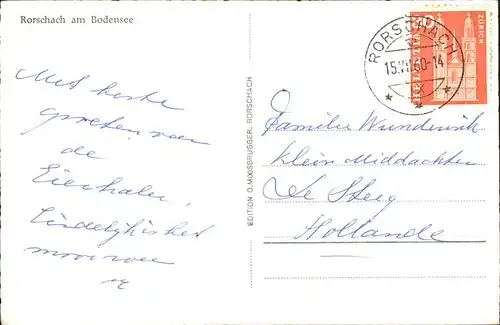 Rorschach am Bodensee
Met beste
groeten van
de
Eierhaler,
Eindelijk is het
mooi weer
EDITION O. MAXSBRUGGER, RORSCHACH
RORSCHACH
15.VII.60-14
ZÜRICH
Familie Wunderink
Klein Middachten
De Steeg
Hollande